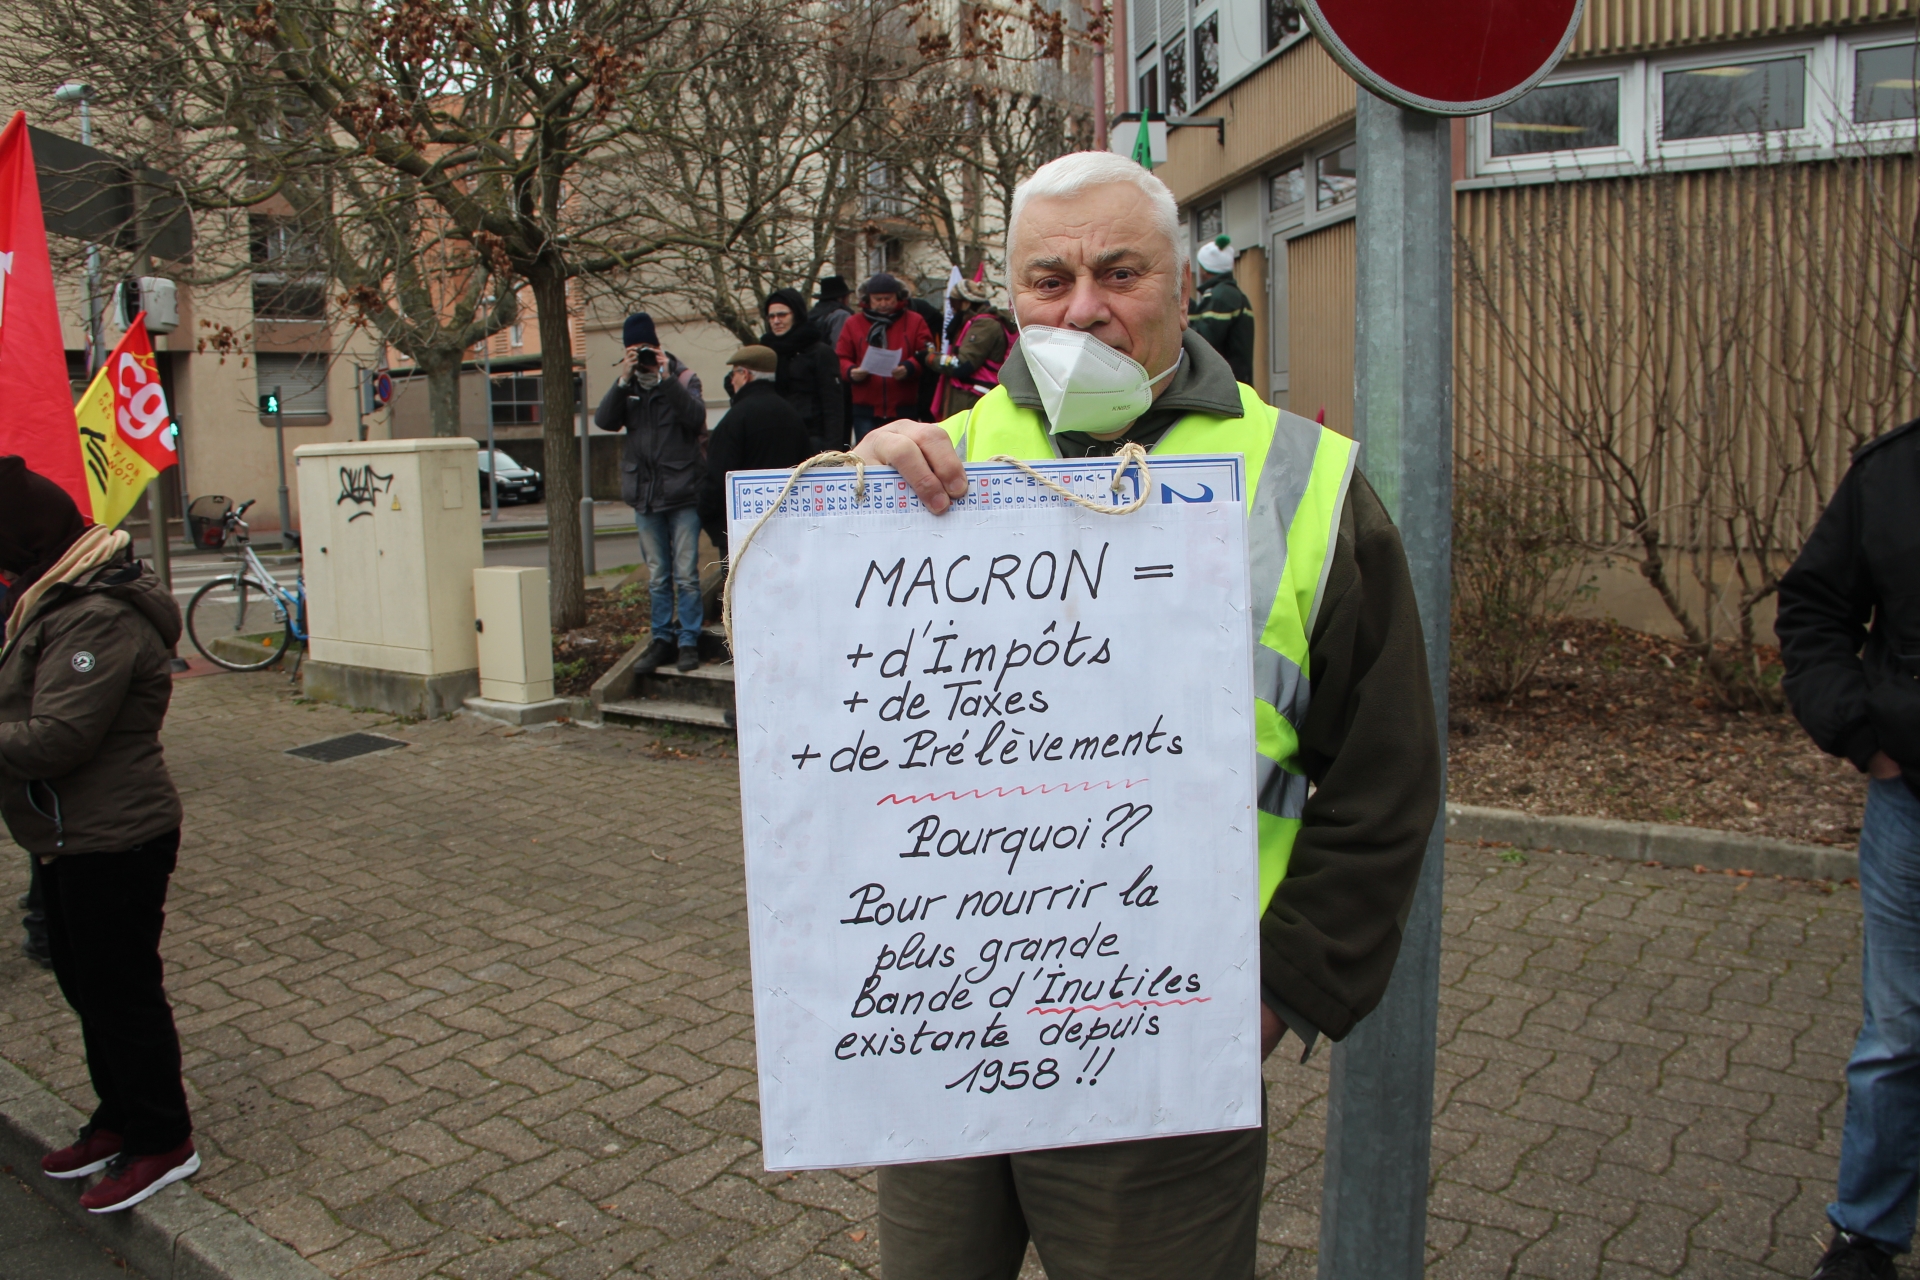 MACRON =
+ d'Impôts
+ de Taxes
+ de Prélèvements
Pourquoi ??
Pour nourrir la
plus grande
Bande d'Inutiles
existante depuis
1958 !!
cgt
KN95